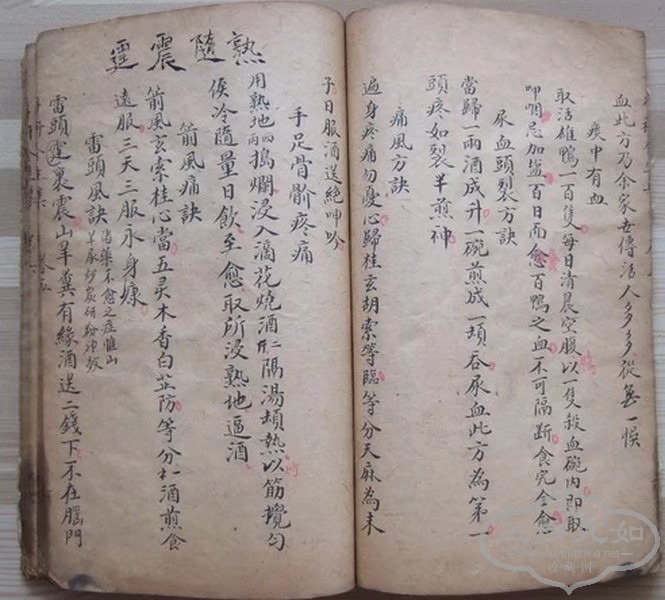 血此方乃余家世傳活人多多從無一悞
痰中有血
取活雄鴨一百隻每日清晨空腹以一隻殺血碗內即取
呷咽忌加盐百日而愈百鴨之血不可隔断食完全愈
尿血頭裂方訣
當歸一兩酒成升一碗煎成一頓吞尿血此方為第一
頭疼如裂半煎神
痛風方訣
遍身疼痛勿憂心歸桂玄胡索等臨等分天麻為末
子日服酒送絕呻吟
手足骨骱疼痛
用熟地四兩搗爛浸入滴花燒酒二隔湯頓熱以筋攪勻
俟冷隨量日飲至愈取所浸熟地逼酒
箭風痛訣
箭風玄索桂心當五灵木香白芷防等分酒煎食
遠服三天三服永身康
雷頭風訣
雷頭裏震山羊糞有緣酒送二錢下不在腦門
霆震隨熱
www.ruyeli-china.net